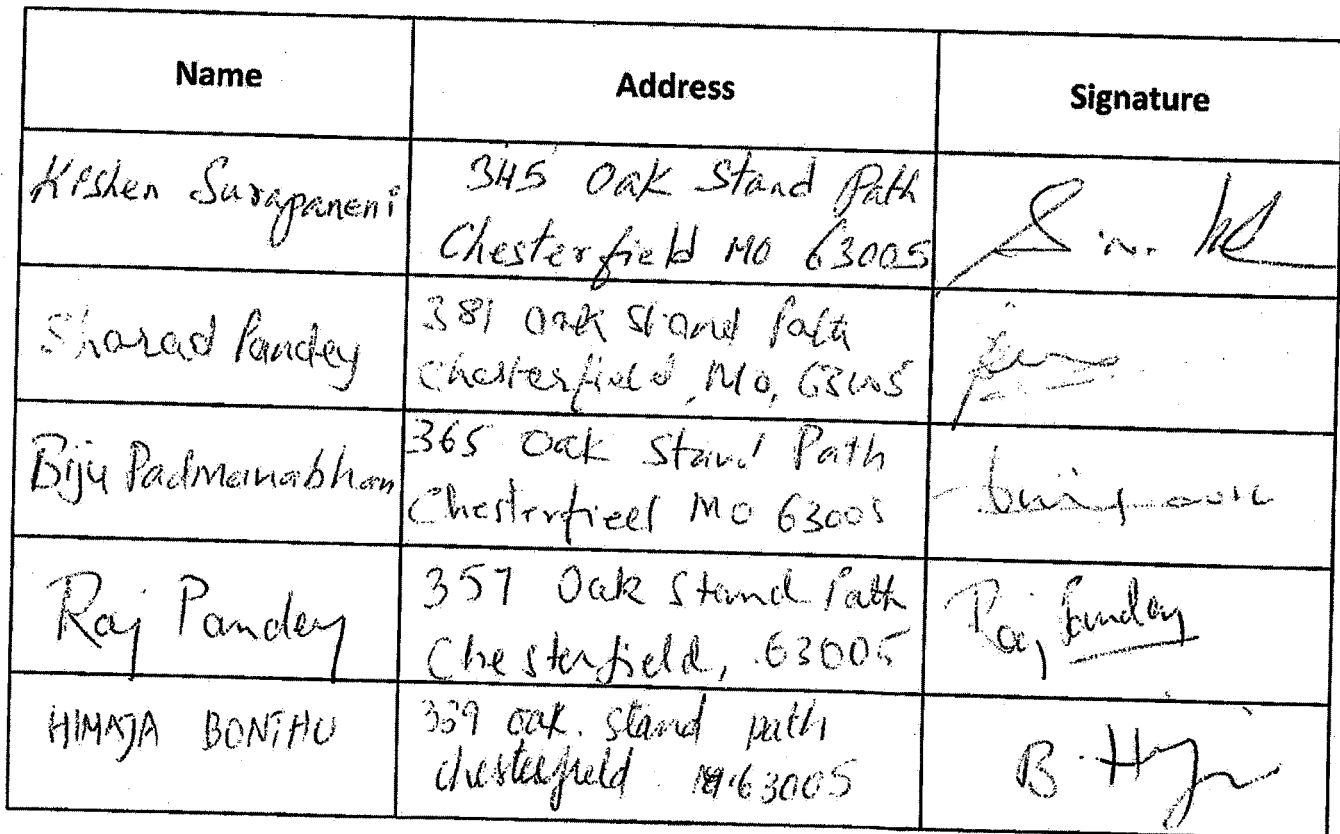 Name Address Signature
Kishen Surapaneni
345 Oak Stand Path
Chesterfield MO 63005
Sharad Pandey
381 Oak Stand Path
Chesterfield, Mo, 63005
Biju Padmanabhan
365 Oak Stand Path
Chesterfield MO 63005
Raj Pandey
357 Oak Stand Path
Chesterfield, 63005
Raj Pandey
HIMAJA BONTHU
oak. stand path
chesterfield 63005
B.